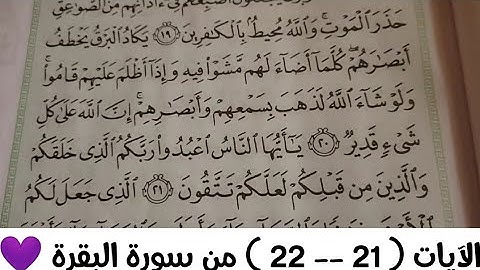 أَصَٰبِعَهُمْ فِىٓ ءَاذَانِهِم مِّنَ ٱلصَّوَٰعِقِ
حَذَرَ ٱلْمَوْتِ ۚ وَٱللَّهُ مُحِيطٌۢ بِٱلْكَٰفِرِينَ ١٩ يَكَادُ ٱلْبَرْقُ يَخْطَفُ
أَبْصَٰرَهُمْ ۖ كُلَّمَآ أَضَآءَ لَهُم مَّشَوْا۟ فِيهِ وَإِذَآ أَظْلَمَ عَلَيْهِمْ قَامُوا۟ ۚ
وَلَوْ شَآءَ ٱللَّهُ لَذَهَبَ بِسَمْعِهِمْ وَأَبْصَٰرِهِمْ ۚ إِنَّ ٱللَّهَ عَلَىٰ كُلِّ
شَىْءٍ قَدِيرٌ ٢٠ يَٰٓأَيُّهَا ٱلنَّاسُ ٱعْبُدُوا۟ رَبَّكُمُ ٱلَّذِى خَلَقَكُمْ
وَٱلَّذِينَ مِن قَبْلِكُمْ لَعَلَّكُمْ تَتَّقُونَ ٢١ ٱلَّذِى جَعَلَ لَكُمُ
الآيات ( 21 -- 22 ) من سورة البقرة 💜